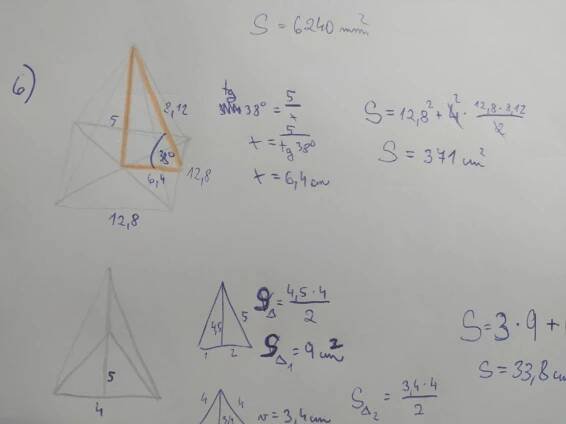 S = 6240 mm²
6)
5
8,12
38°
6,4
12,8
12,8
tg 38° = 5/x
x = 5/tg 38°
x = 6,4 cm
S = 12,8² + 4² · 12,8 · 8,12/2
S = 371 cm²
5
4
4,5
5
1
2
S△ = 4,5 · 4/2
S△₁ = 9 cm²
4
4
3,4
v = 3,4 cm
S△₂ = 3,4 · 4/2
S = 3 · 9 +
S = 33,8 cm